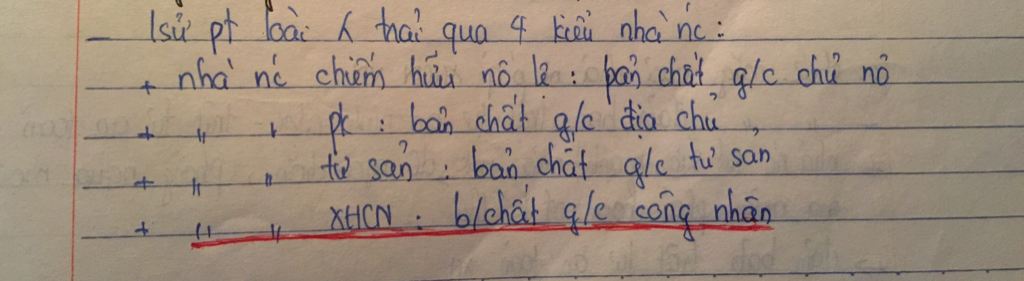 - lsử pt loài ʎ trải qua 4 kiểu nhà nc:
+ nhà nc chiếm hữu nô lệ: bản chất g/c chủ nô
+ " " pk: bản chất g/c địa chủ
+ " " tư sản: bản chất g/c tư sản
+ " " XHCN: b/chất g/c công nhân